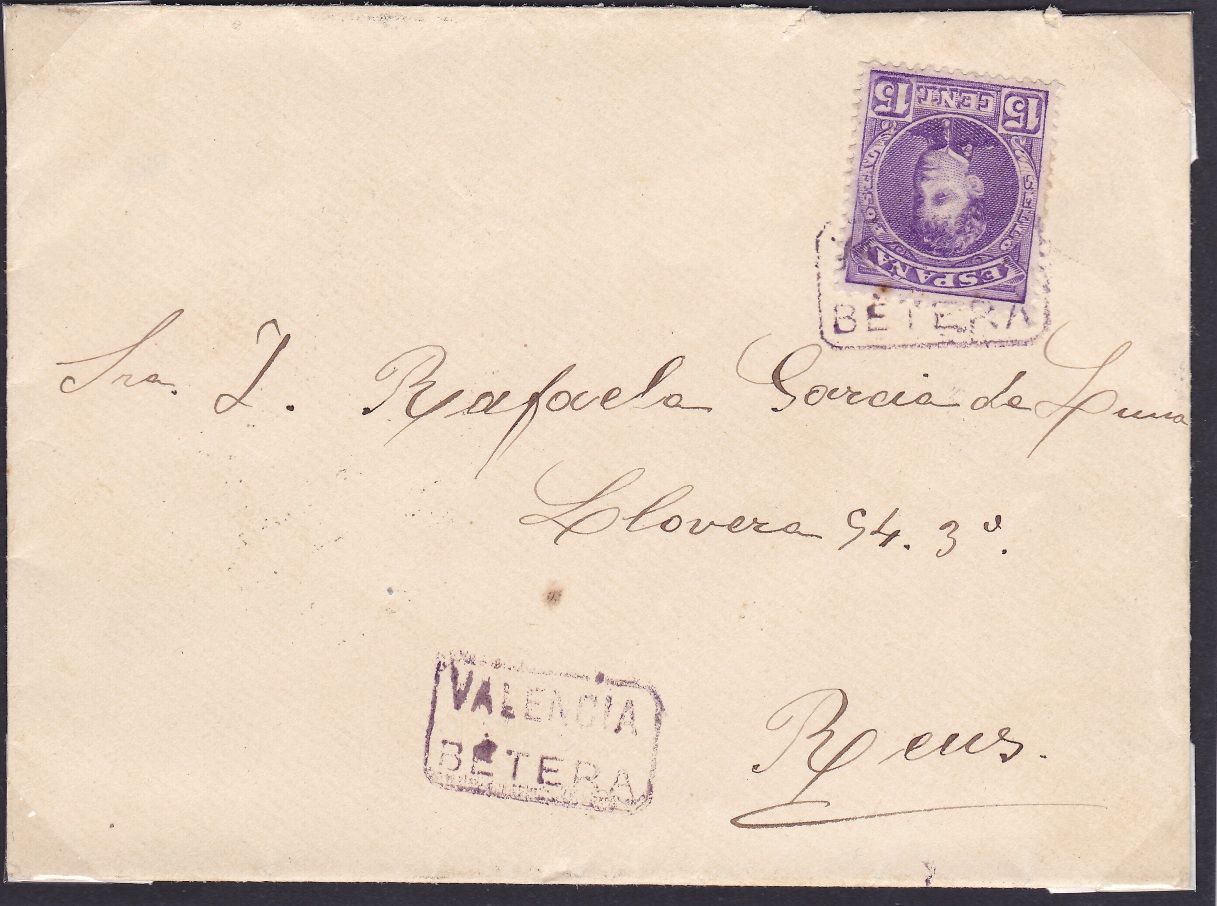 15 CENT. 15
ESPAÑA
BÉTERA
Sra. D. Rafaela Garcia de Luna
Llovera 54. 3º.
VALENCIA
BÉTERA
Reus.